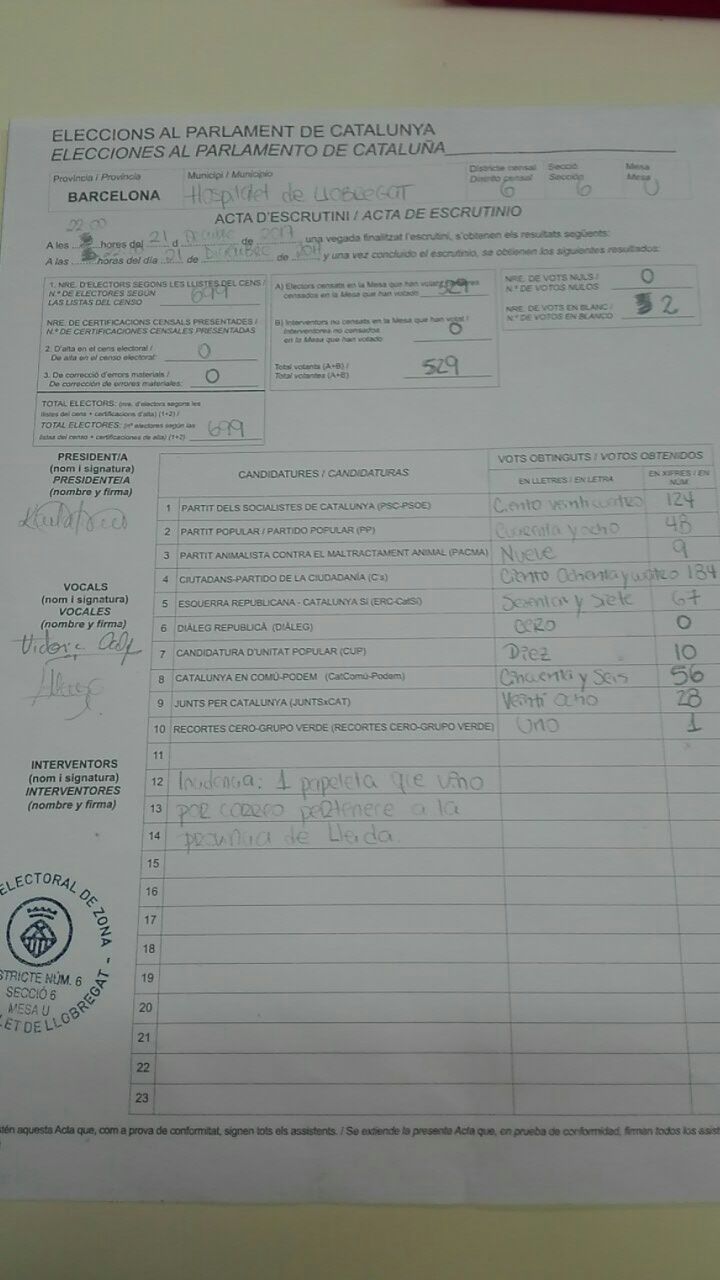 ELECCIONS AL PARLAMENT DE CATALUNYA
ELECCIONES AL PARLAMENTO DE CATALUÑA
Província / Provincia
BARCELONA
Municipi / Municipio
Hospitalet de LLOBREGAT
Districte censal
Distrito censal
6
Secció
Sección
6
Mesa
Mesa
U
ACTA D'ESCRUTINI / ACTA DE ESCRUTINIO
22:00
A les hores del 21 d Diciembre de 2017 una vegada finalitzat l'escrutini, s'obtenen els resultats següents:
A las horas del día 21 de DICIEMBRE de 2017 y una vez concluido el escrutinio, se obtienen los siguientes resultados:
1. NRE. D'ELECTORS SEGONS LES LLISTES DEL CENS /
N.º DE ELECTORES SEGÚN
LAS LISTAS DEL CENSO
699
NRE. DE CERTIFICACIONS CENSALS PRESENTADES /
N.º DE CERTIFICACIONES CENSALES PRESENTADAS
2. D'alta en el cens electoral /
De alta en el censo electoral:
0
3. De correcció d'errors materials /
De corrección de errores materiales:
0
TOTAL ELECTORS: (nre. d'electors segons les
llistes del cens + certificacions d'alta) (1+2) /
TOTAL ELECTORES: (nº electores según las
listas del censo + certificaciones de alta) (1+2)
699
A) Electors censats en la Mesa que han votat
censados en la Mesa que han votado
529
B) Interventors no censats en la Mesa que han votat /
Interventores no censados
en la Mesa que han votado
0
Total votants (A+B) /
Total votantes (A+B)
529
NRE. DE VOTS NULS /
N.º DE VOTOS NULOS
0
NRE. DE VOTS EN BLANC /
N.º DE VOTOS EN BLANCO
2
PRESIDENT/A
(nom i signatura)
PRESIDENTE/A
(nombre y firma)
VOCALS
(nom i signatura)
VOCALES
(nombre y firma)
INTERVENTORS
(nom i signatura)
INTERVENTORES
(nombre y firma)
CANDIDATURES / CANDIDATURAS
VOTS OBTINGUTS / VOTOS OBTENIDOS
EN LLETRES / EN LETRA
EN XIFRES / EN NÚM.
1 PARTIT DELS SOCIALISTES DE CATALUNYA (PSC-PSOE) Ciento veinticuatro 124
2 PARTIT POPULAR / PARTIDO POPULAR (PP) Cuarenta y ocho 48
3 PARTIT ANIMALISTA CONTRA EL MALTRACTAMENT ANIMAL (PACMA) Nueve 9
4 CIUTADANS-PARTIDO DE LA CIUDADANÍA (C's) Ciento Ochenta y cuatro 184
5 ESQUERRA REPUBLICANA - CATALUNYA SÍ (ERC-CatSí) Sesenta y Siete 67
6 DIÀLEG REPUBLICÀ (DIÀLEG) CERO 0
7 CANDIDATURA D'UNITAT POPULAR (CUP) Diez 10
8 CATALUNYA EN COMÚ-PODEM (CatComú-Podem) Cincuenta y Seis 56
9 JUNTS PER CATALUNYA (JUNTSxCAT) Veinti ocho 28
10 RECORTES CERO-GRUPO VERDE (RECORTES CERO-GRUPO VERDE) Uno 1
11
12 Incidencia: 1 papeleta que vino
13 por correo pertenece a la
14 provincia de Lleida.
15
16
17
18
19
20
21
22
23
ELECTORAL DE ZONA -
STRICTE NÚM. 6
SECCIÓ 6
MESA U
LET DE LLOBREGAT
stén aquesta Acta que, com a prova de conformitat, signen tots els assistents. / Se extiende la presente Acta que, en prueba de conformidad, firman todos los asist